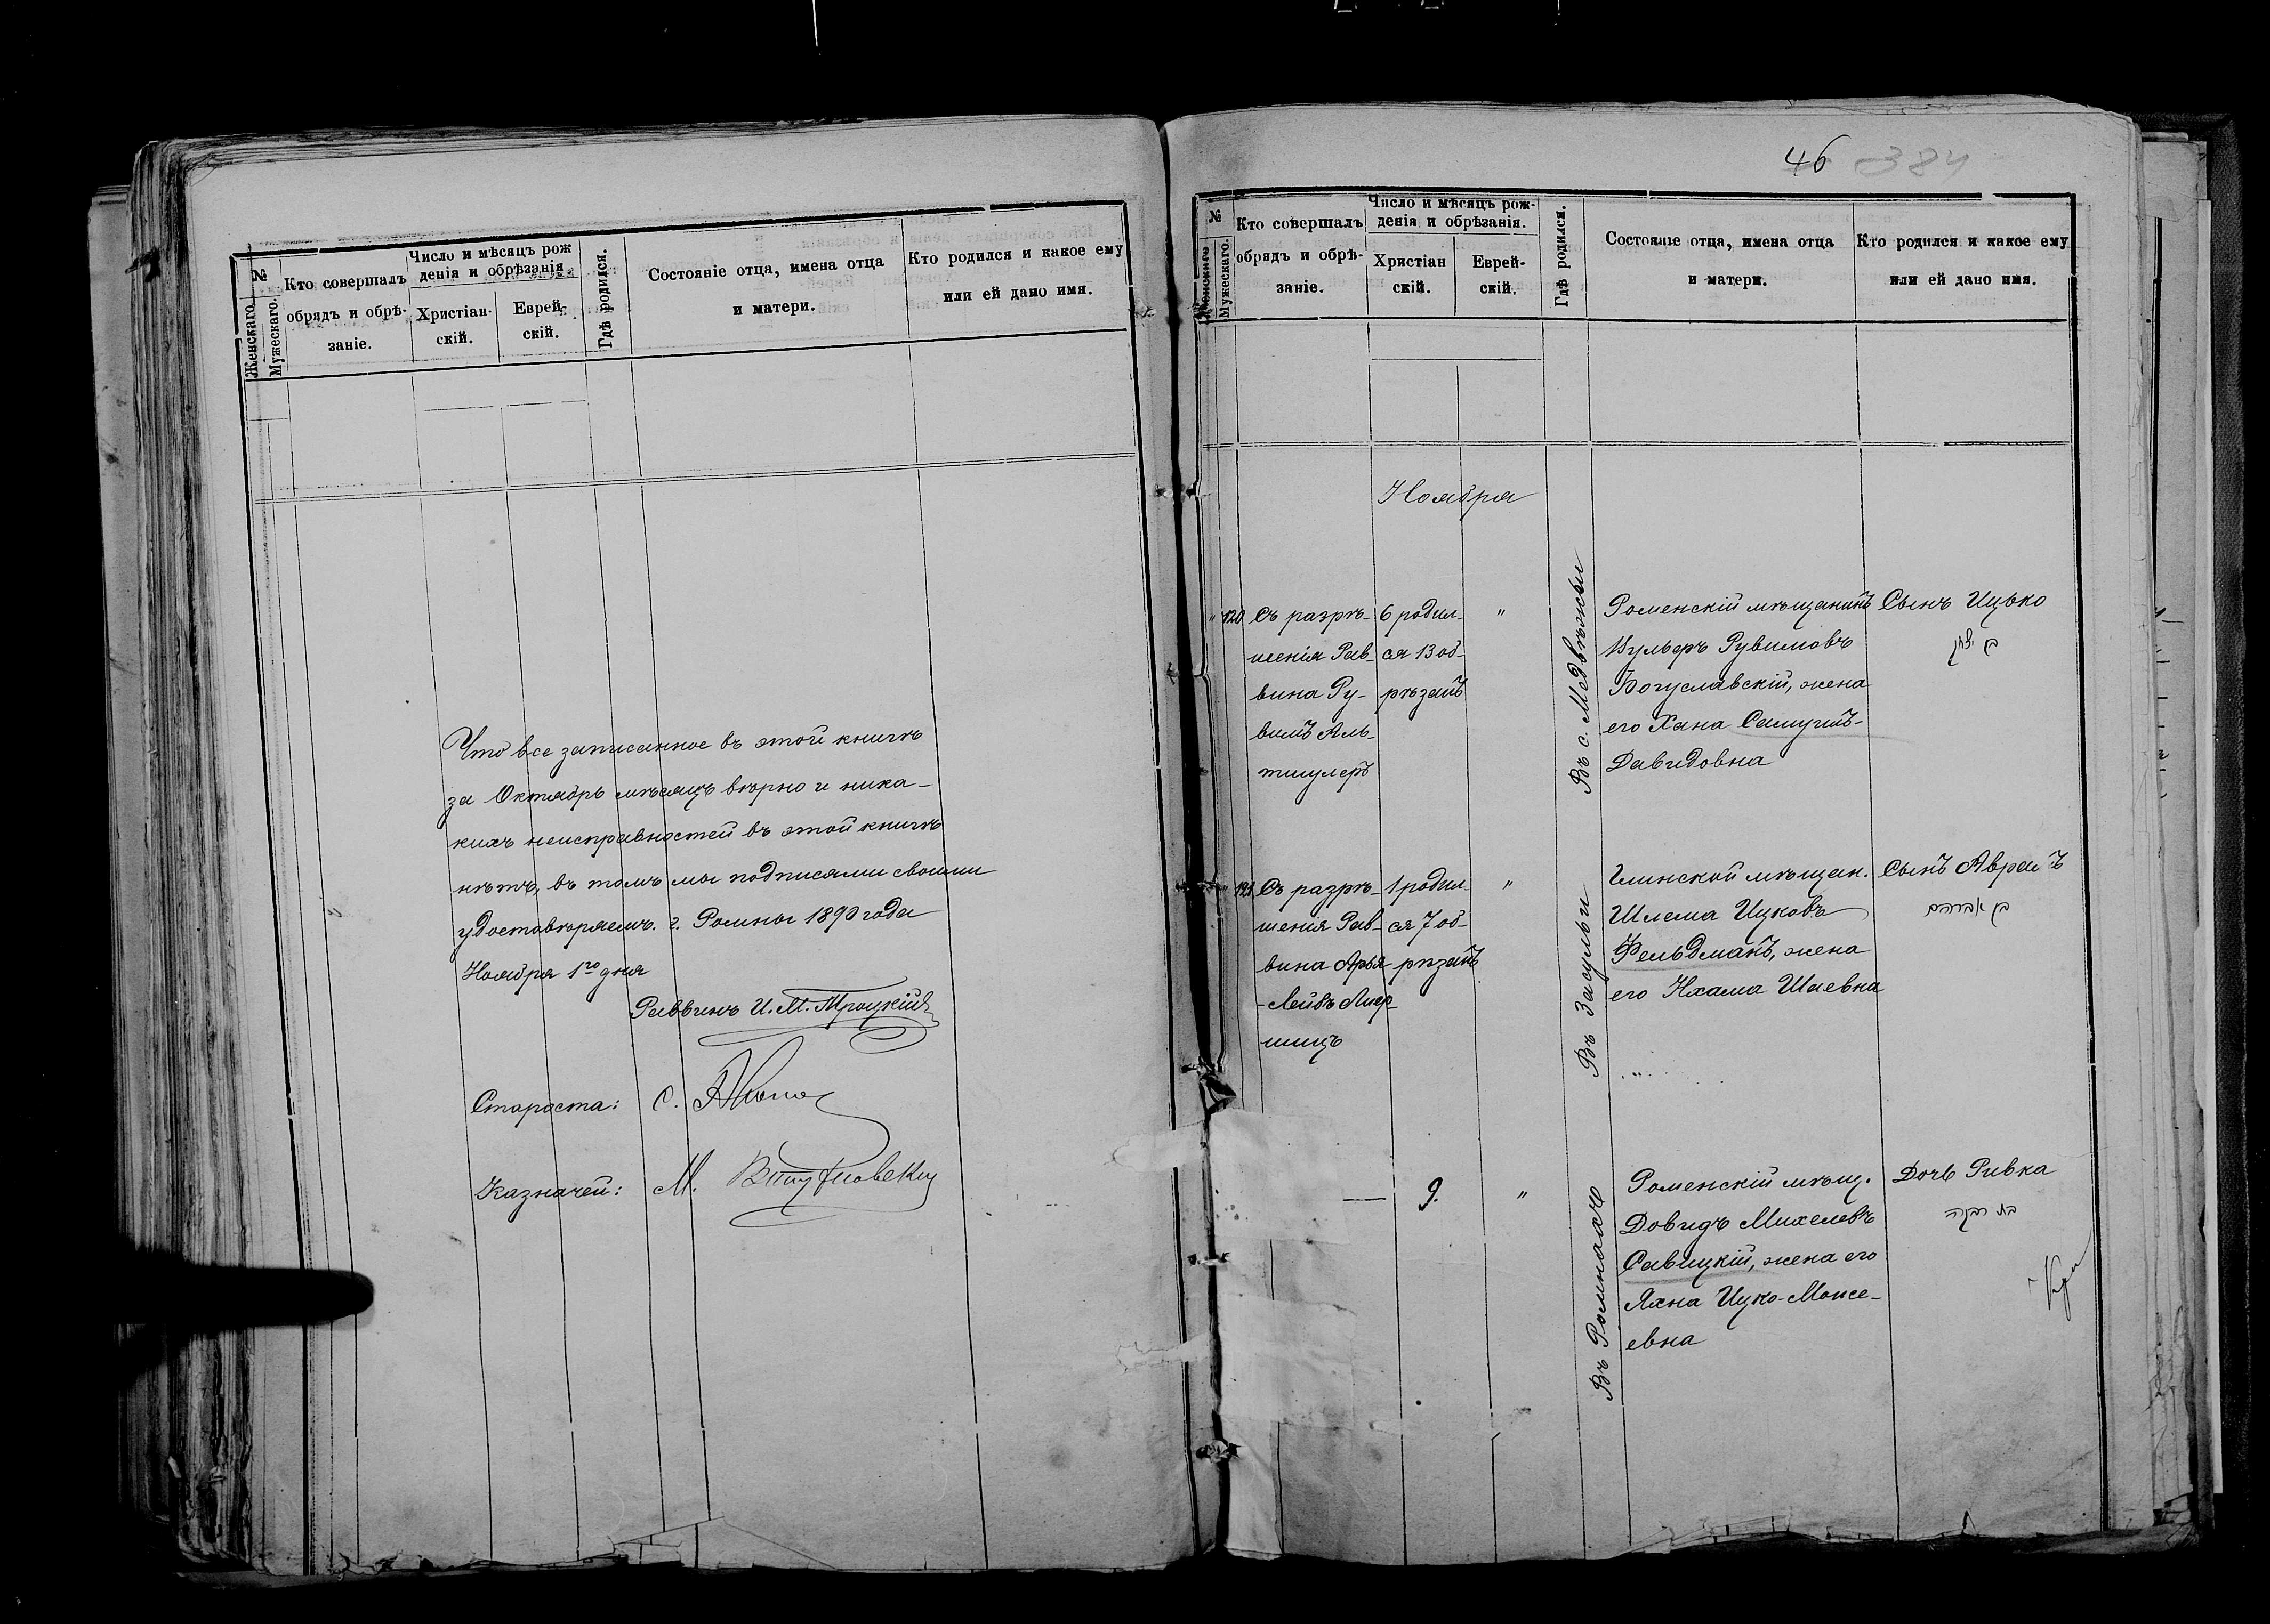 №
Женскаго.
Мужескаго.
Кто совершалъ
обрядъ и обрѣ-
заніе.
Число и мѣсяцъ рож
денія и обрѣзанія
Христіан-
скій.
Еврей-
скій.
Гдѣ родился.
Состояніе отца, имена отца
и матери.
Кто родился и какое ему
или ей дано имя.
Что все записанное въ этой книгѣ
за Октябрь мѣсяцъ вѣрно и ника-
кихъ неисправностей въ этой книгѣ
нѣтъ, въ томъ мы подписями своими
удостовѣряемъ. г. Ромны 1890 года
Ноября 1го дня
Раввинъ И. М.
Староста: С.
Казначей: М.
46 384
№
Женскаго
Мужескаго.
Кто совершалъ
обрядъ и обрѣ-
заніе.
Число и мѣсяцъ рож-
денія и обрѣзанія.
Христіан
скій.
Еврей-
скій.
Гдѣ родился.
Состояніе отца, имена отца
и матери.
Кто родился и какое ему
или ей дано имя.
Ноября
" 120
Съ разрѣ-
шенія Рав-
вина Ру-
вимъ Аль-
тшулеръ
6 родил-
ся 13 об-
рѣзанъ
"
Въ с. Медвѣжьи
Роменскій мѣщанинъ
Вульфъ Рувимовъ
Богуславскій, жена
его Хана
Давидовна
Сынъ Ицько
בן יצחק
121
Съ разрѣ-
шенія Рав-
вина Арья
-Лейбъ Лиф-
шицъ
1 родил-
ся 7 об-
рѣзанъ
"
Въ Засульи
Глинской мѣщан.
Шлема Ицковъ
Фельдманъ, жена
его Нхама Шаевна
Сынъ Аврамъ
בן אברהם
9.
"
Въ Ромнахъ
Роменскій мѣщ.
Довидъ Михелевъ
Савицкій, жена его
Яхна Ицко-Моисе-
евна
Дочь Ривка
בת רבקה